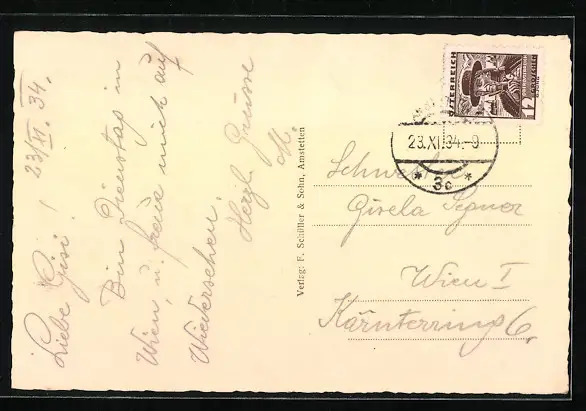 23/XI. 34.
Liebe Gisi!
Bin Dienstag in
Wien, u. freue mich auf
Wiedersehen.
Herzl. Grüsse
M.
Verlag: F. Schiffler & Sohn, Amstetten
ÖSTERREICH
12
GROSCHEN
23.XI.34.-9
* 3c *
Schwester
Gisela
Wien I
Kärntnerring 6.